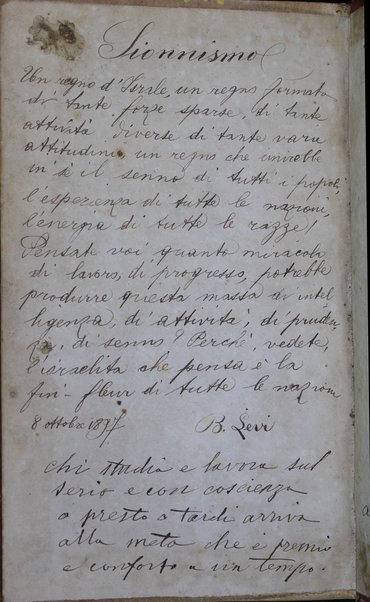 Sionnismo
Un regno d'Isrle, un regno formato
di tante forze sparse, di tante
attività diverse di tante varie
attitudini un regno che unirebbe
in sè il senno di tutti i popoli,
l'esperienza di tutte le nazioni,
l'energia di tutte le razze!
Pensate voi quanto miracoli
di lavoro, di progresso, potrebbe
produrre questa massa di intel
ligenza, di attività, di pruden
za, di senno? Perchè, vedete,
l'israelita che pensa è la
fin-fleur di tutte le nazioni
8 ottobre 1897
B. Levi
chi studia e lavora sul
serio e con coscienza
o presto o tardi arriva
alla meta che è premio
e conforto a un tempo.